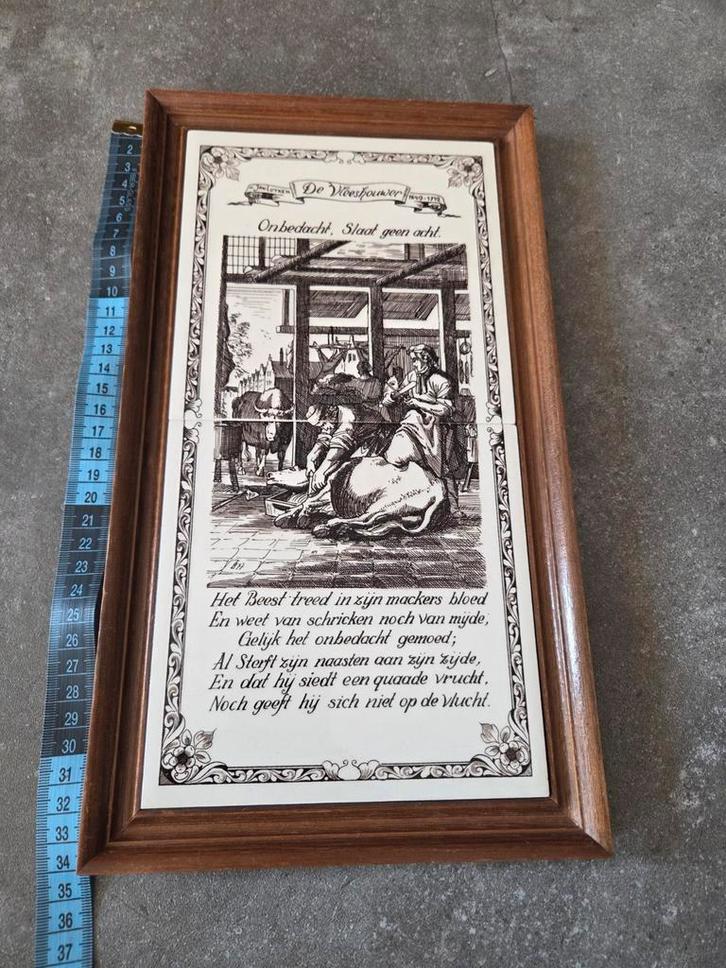 Jan Luyken De Vleeshouwer 1649-1712
Onbedacht, Slaat geen acht.
Het Beest treed in zijn mackers bloed
En weet van schricken noch van mijde,
Gelijk het onbedacht gemoed;
Al Sterft zijn naasten aan zijn zijde,
En dat hij siedt een quaade vrucht,
Noch geeft hij sich niet op de vlucht.
2
3
4
5
6
7
8
9
10
11
12
13
14
15
16
17
18
19
20
21
22
23
24
25
26
27
28
29
30
31
32
33
34
35
36
37